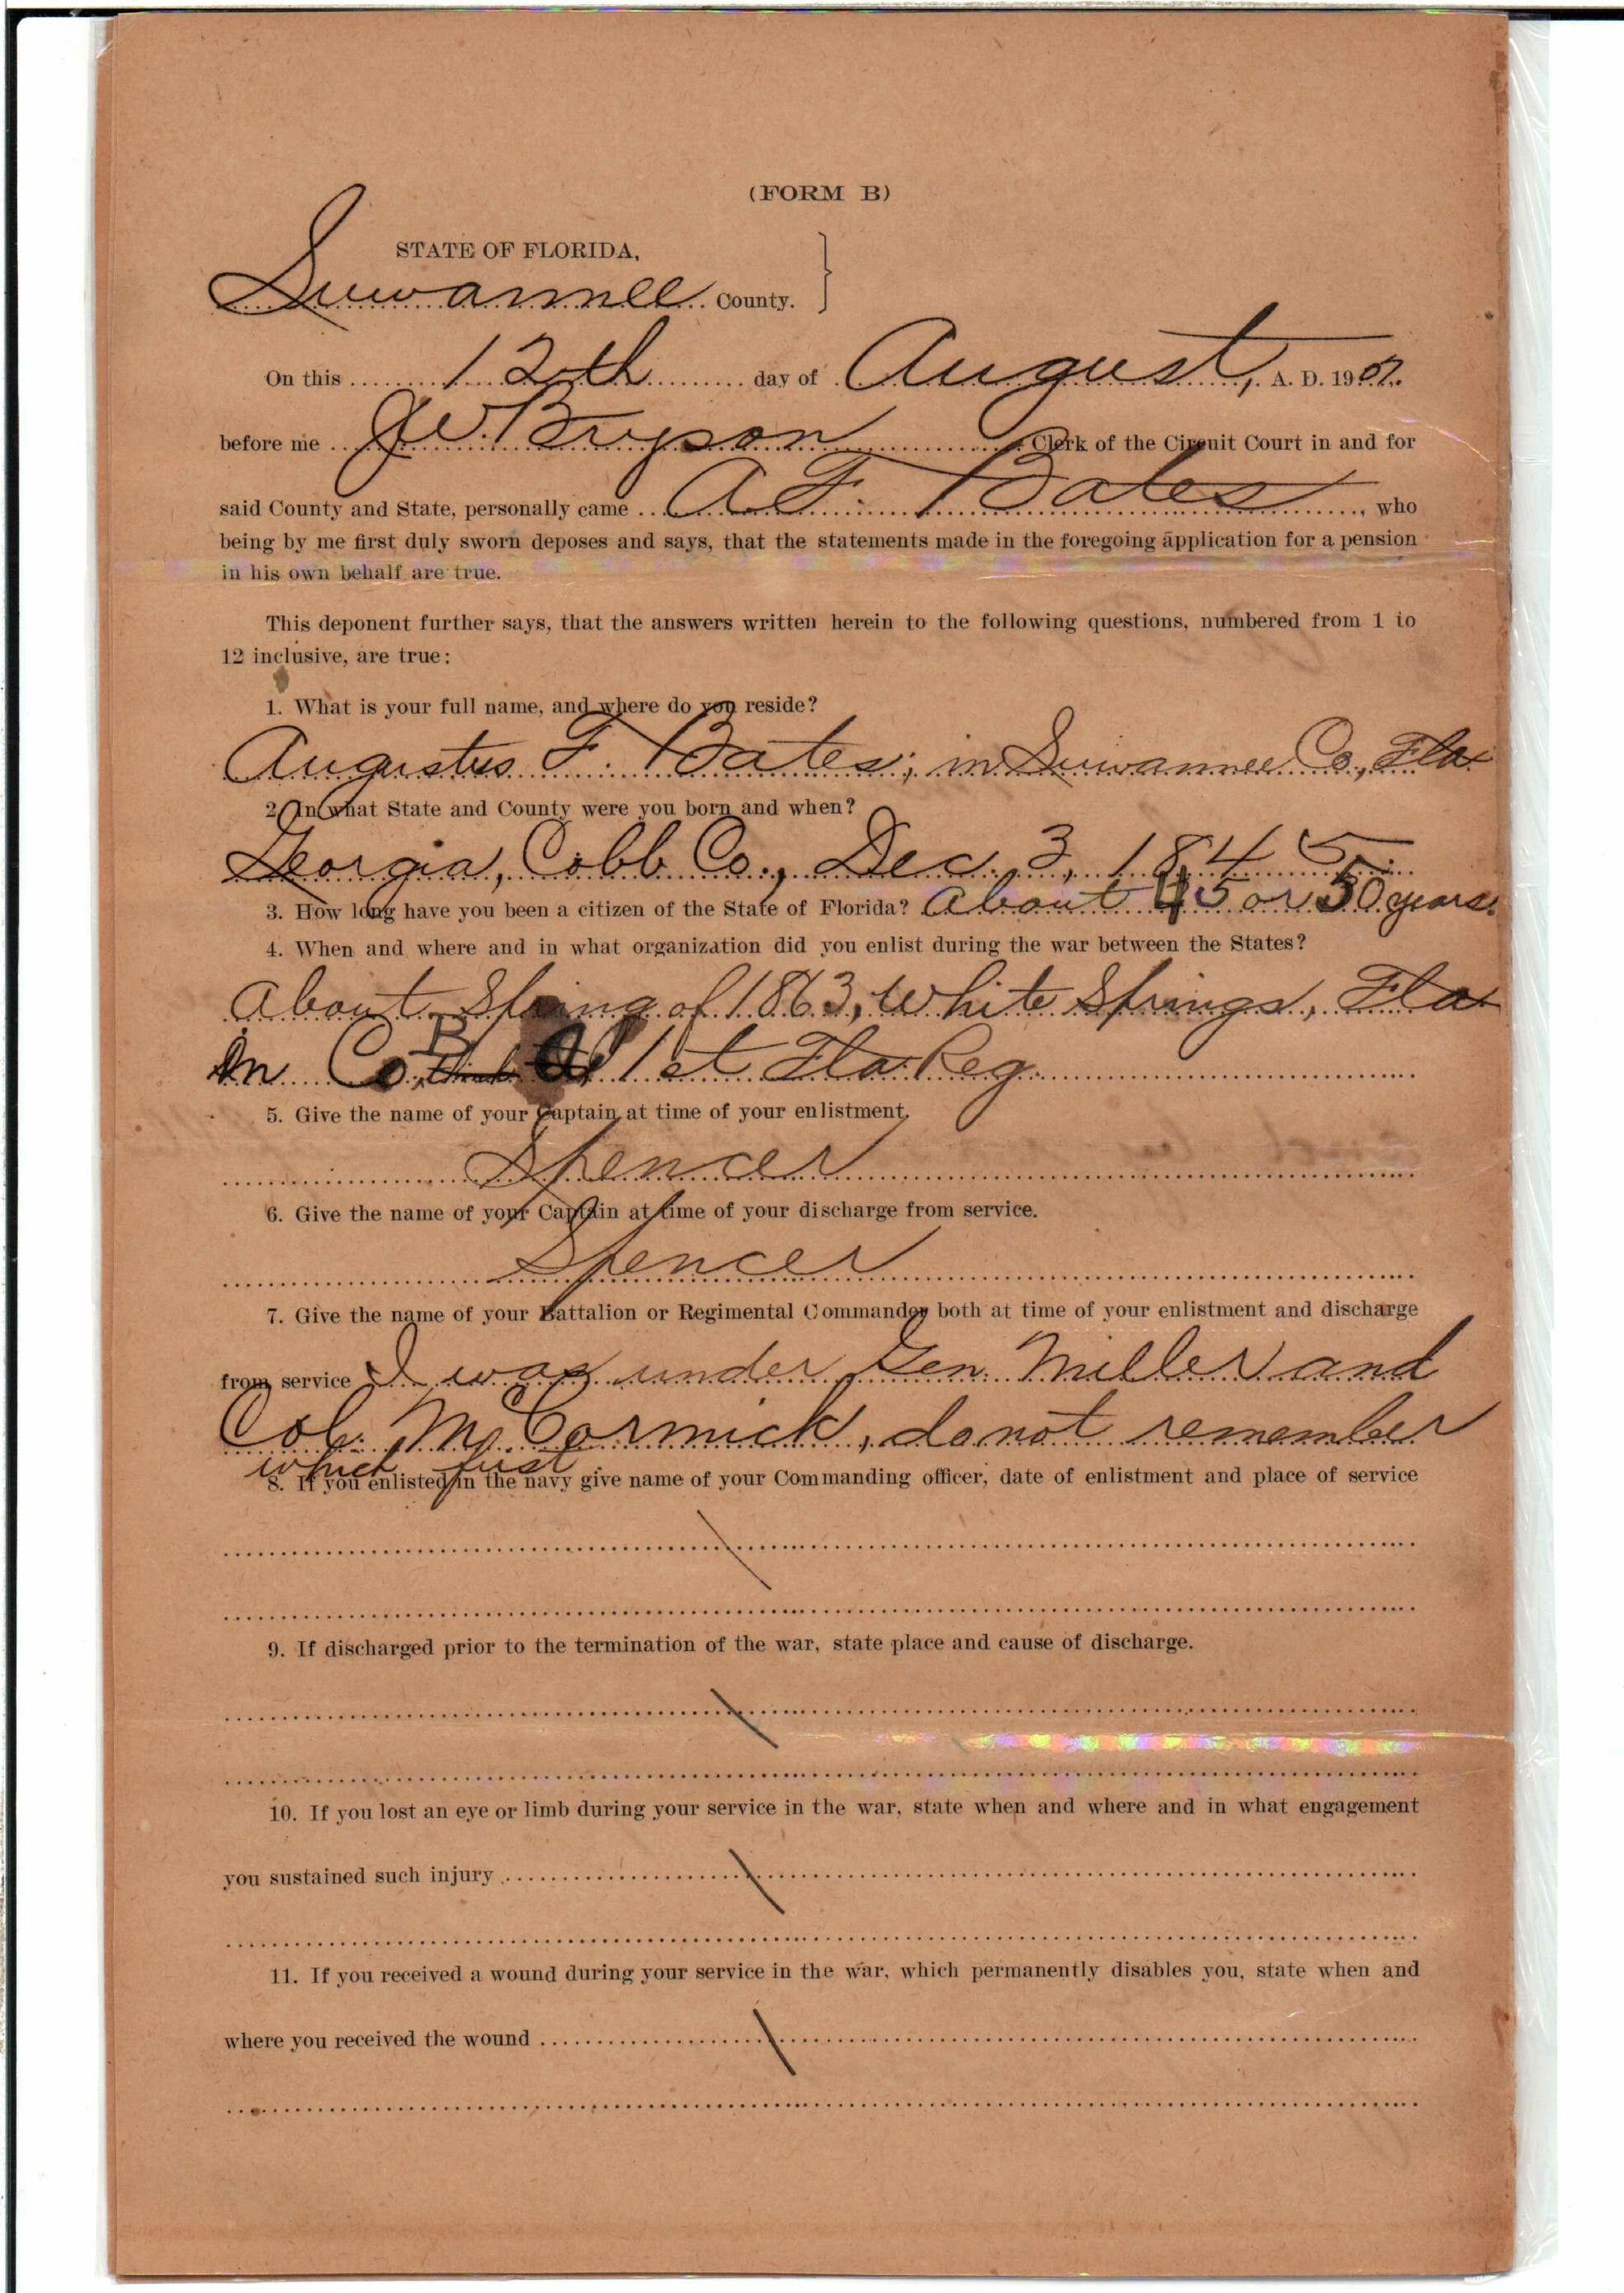 (FORM B)
STATE OF FLORIDA,
Suwannee County.
On this 12th day of August, A. D. 190
before me J W. Bryson Clerk of the Circuit Court in and for
said County and State, personally came A F. Bates, who
being by me first duly sworn deposes and says, that the statements made in the foregoing application for a pension
in his own behalf are true.
This deponent further says, that the answers written herein to the following questions, numbered from 1 to
12 inclusive, are true:
1. What is your full name, and where do you reside?
Augustus F. Bates; in Suwannee Co, Fla
2. In what State and County were you born and when?
Georgia, Cobb Co., Dec. 3, 1845.
3. How long have you been a citizen of the State of Florida? About 45 or 50 years.
4. When and where and in what organization did you enlist during the war between the States?
About Spring of 1863, White Springs, Fla
In Co, B 1st Fla. Reg.
5. Give the name of your Captain at time of your enlistment.
Spencer
6. Give the name of your Captain at time of your discharge from service.
Spencer
7. Give the name of your Battalion or Regimental Commander both at time of your enlistment and discharge
from service I was under Gen. Miller and
Col. McCormick, do not remember
which first
8. If you enlisted in the navy give name of your Commanding officer, date of enlistment and place of service
9. If discharged prior to the termination of the war, state place and cause of discharge.
10. If you lost an eye or limb during your service in the war, state when and where and in what engagement
you sustained such injury
11. If you received a wound during your service in the war, which permanently disables you, state when and
where you received the wound